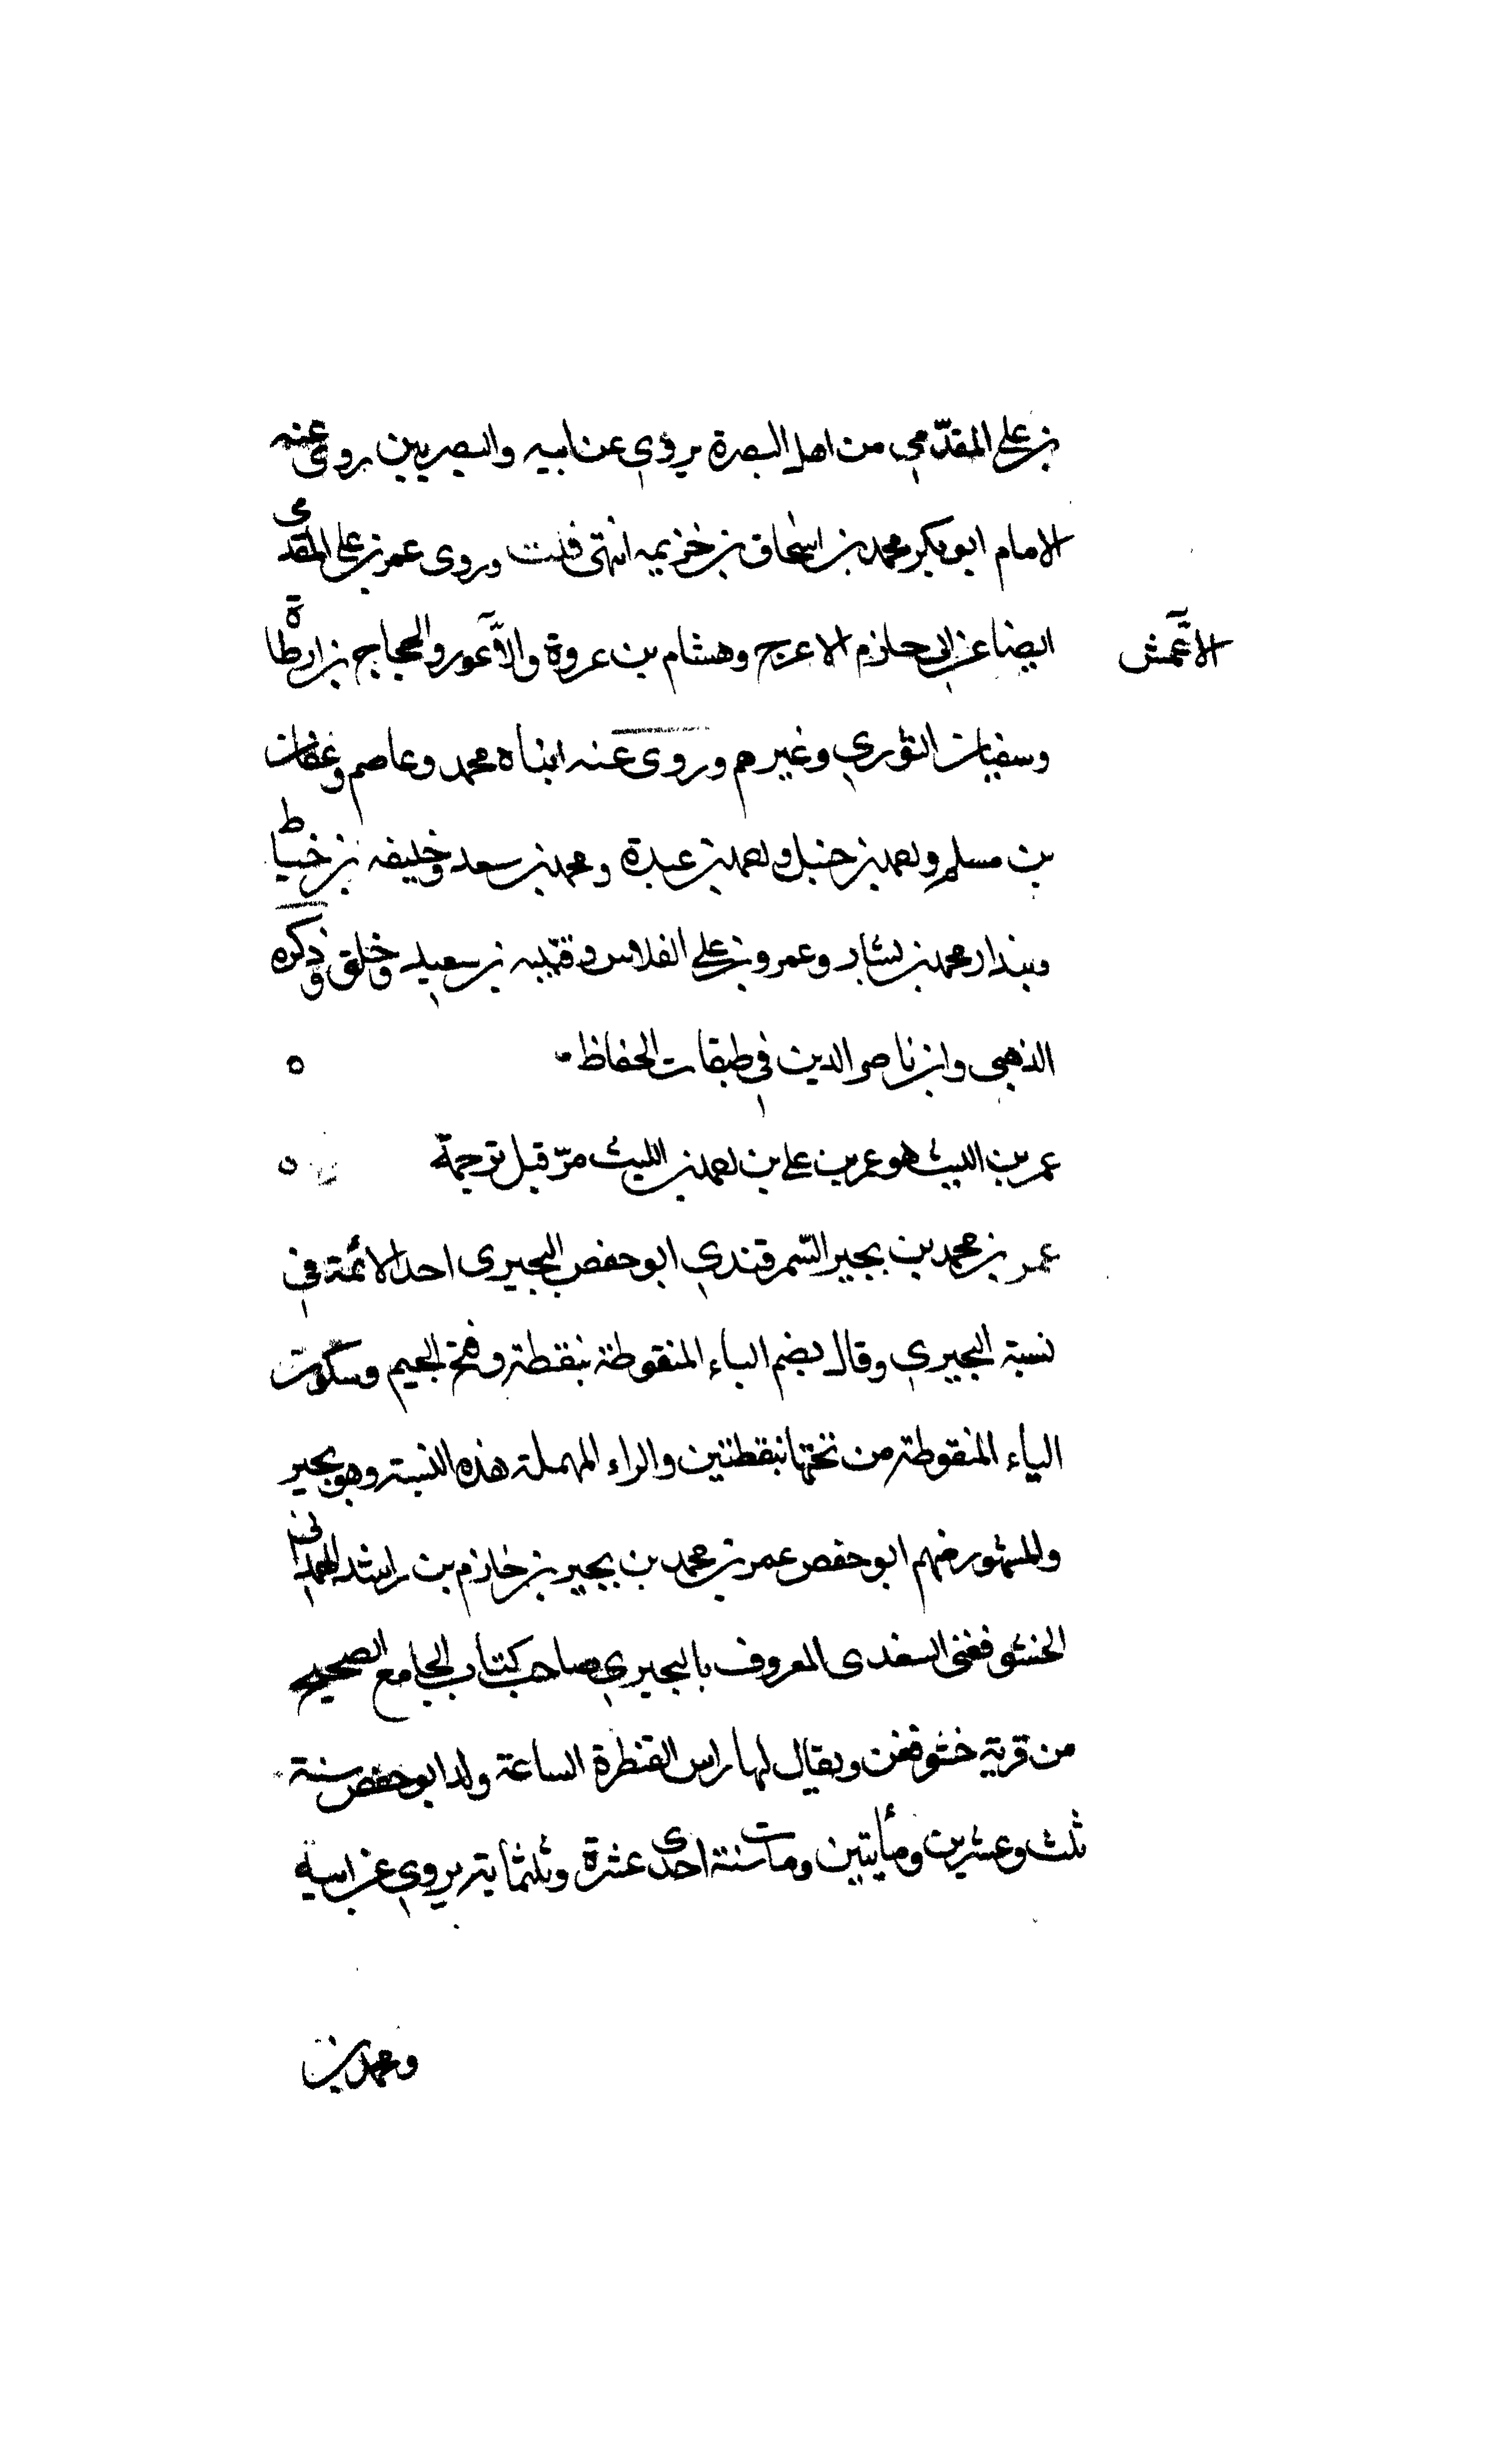 بن علي المقدّمي من اهل البصرة يروي عن ابيه والبصريين روى عنه
الامام ابو بكر محمد بن اسحاق بن خزيمه انتهى قلت وروى عمر بن علي المقدمى
ايضا عن ابى حازم الاعرج وهشام بن عروة والاعور والحجاج بن ارطاة
الاعمش
وسفيان الثوري وغيرهم وروى عنه ابناه محمد وعاصم وعفان
بن مسلم واحمد بن حنبل واحمد بن عبدة ومحمد بن سعد وخليفه بن خياط
وبندار محمد بن بشار وعمرو بن علي الفلاس وقتيبه بن سعيد وخلق وذكره
الذهبى وابن ناصر الدين في طبقات الحفاظ
عمر بن الليث هو عمر بن علي بن احمد بن الليث مرّ قبل ترجمة
عمر بن محمد بن بجير السّمرقندي ابو حفص البجيرى احد الائمة في
نسبة البجيري وقال بضم الباء المنقوطة بنقطة وفتح الجيم وسكون
الياء المنقوطة من تحتها بنقطتين والراء المهملة هذه النسبة وهو بجير
والمشهور منهم ابو حفص عمر بن محمد بن بجير بن خازم بن راشد الهمدانى
الخشوفغنى السغدى المعروف بالبجيري صاحب كتاب الجامع الصحيح
من قرية خشوفغن ويقال لها راس القنطرة الساعة ولد ابو حفص سنة
ثلث وعشرين ومأيتين ومات سنة احدى عشرة وثلثماية يروي عن ابيه
ومحمد بن